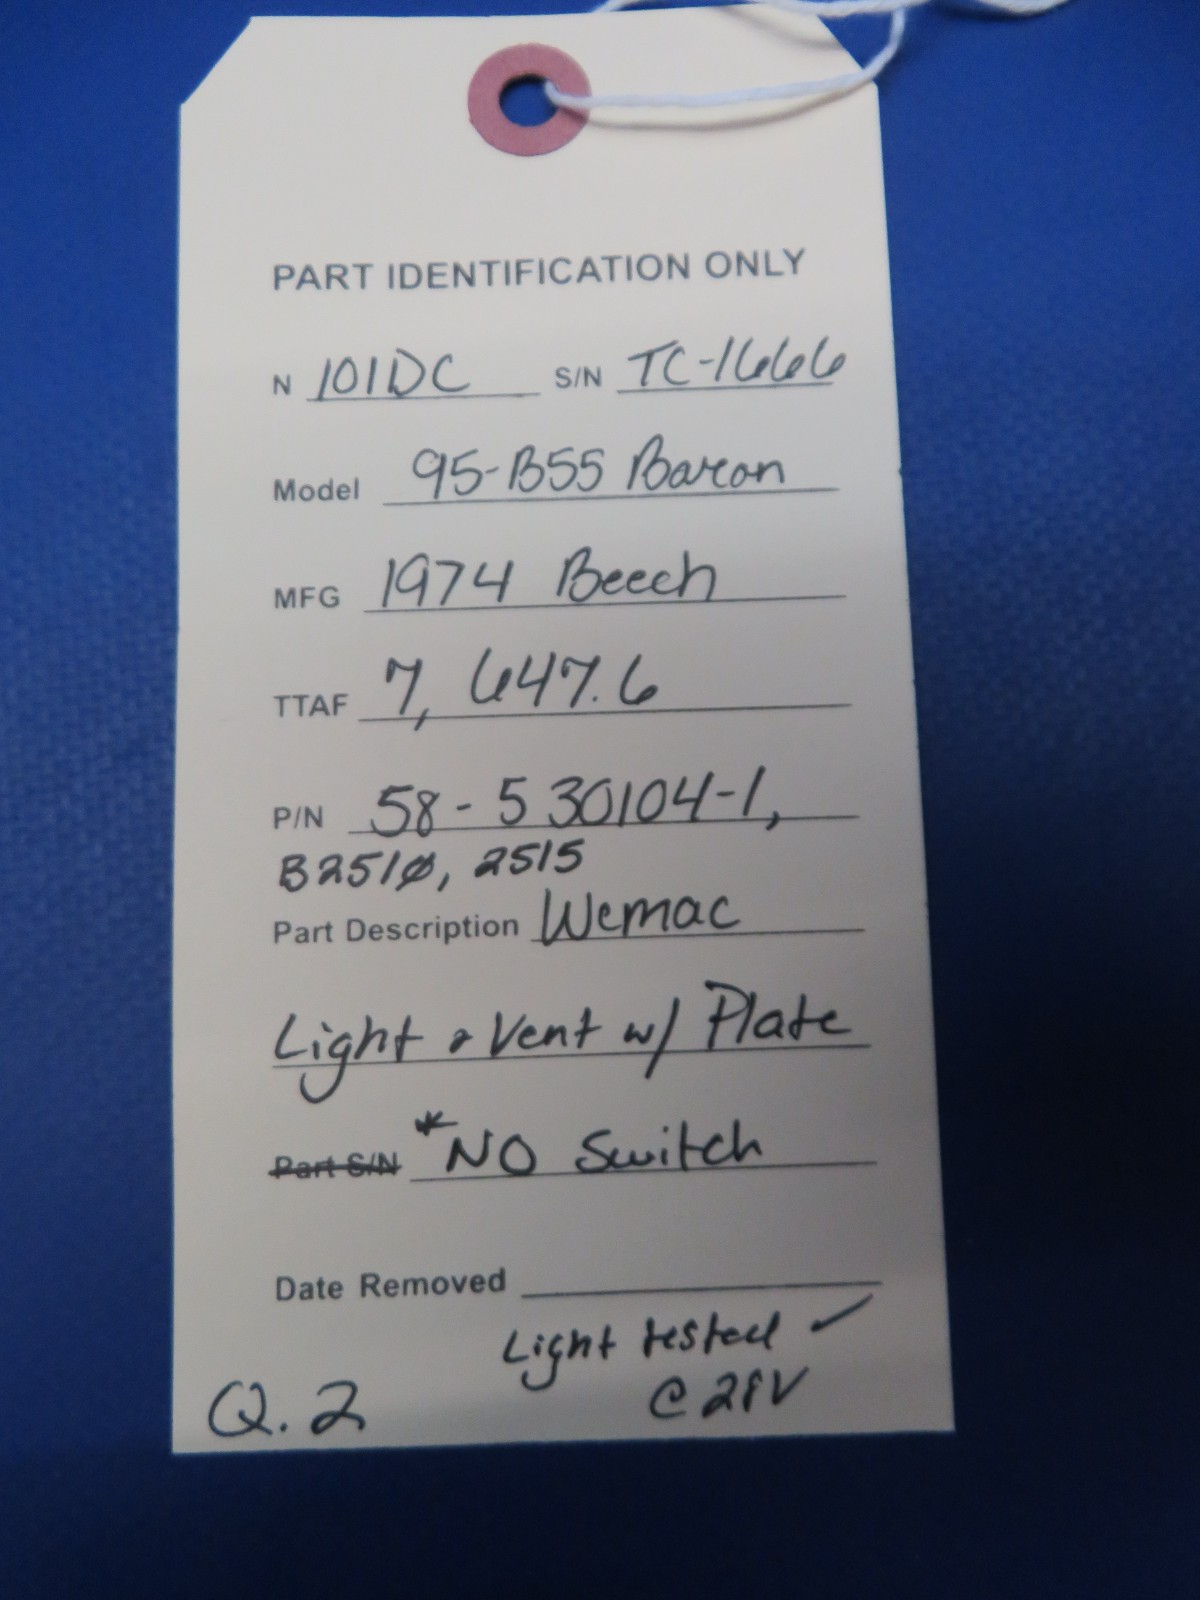 PART IDENTIFICATION ONLY
N 101DC S/N TC-1666
Model 95-B55 Baron
MFG 1974 Beech
TTAF 7,647.6
P/N 58-530104-1,
B2510, 2515
Part Description Wemac
Light & Vent w/ Plate
Part S/N *NO Switch
Date Removed
Light tested ✓
@ 28V
Q.2